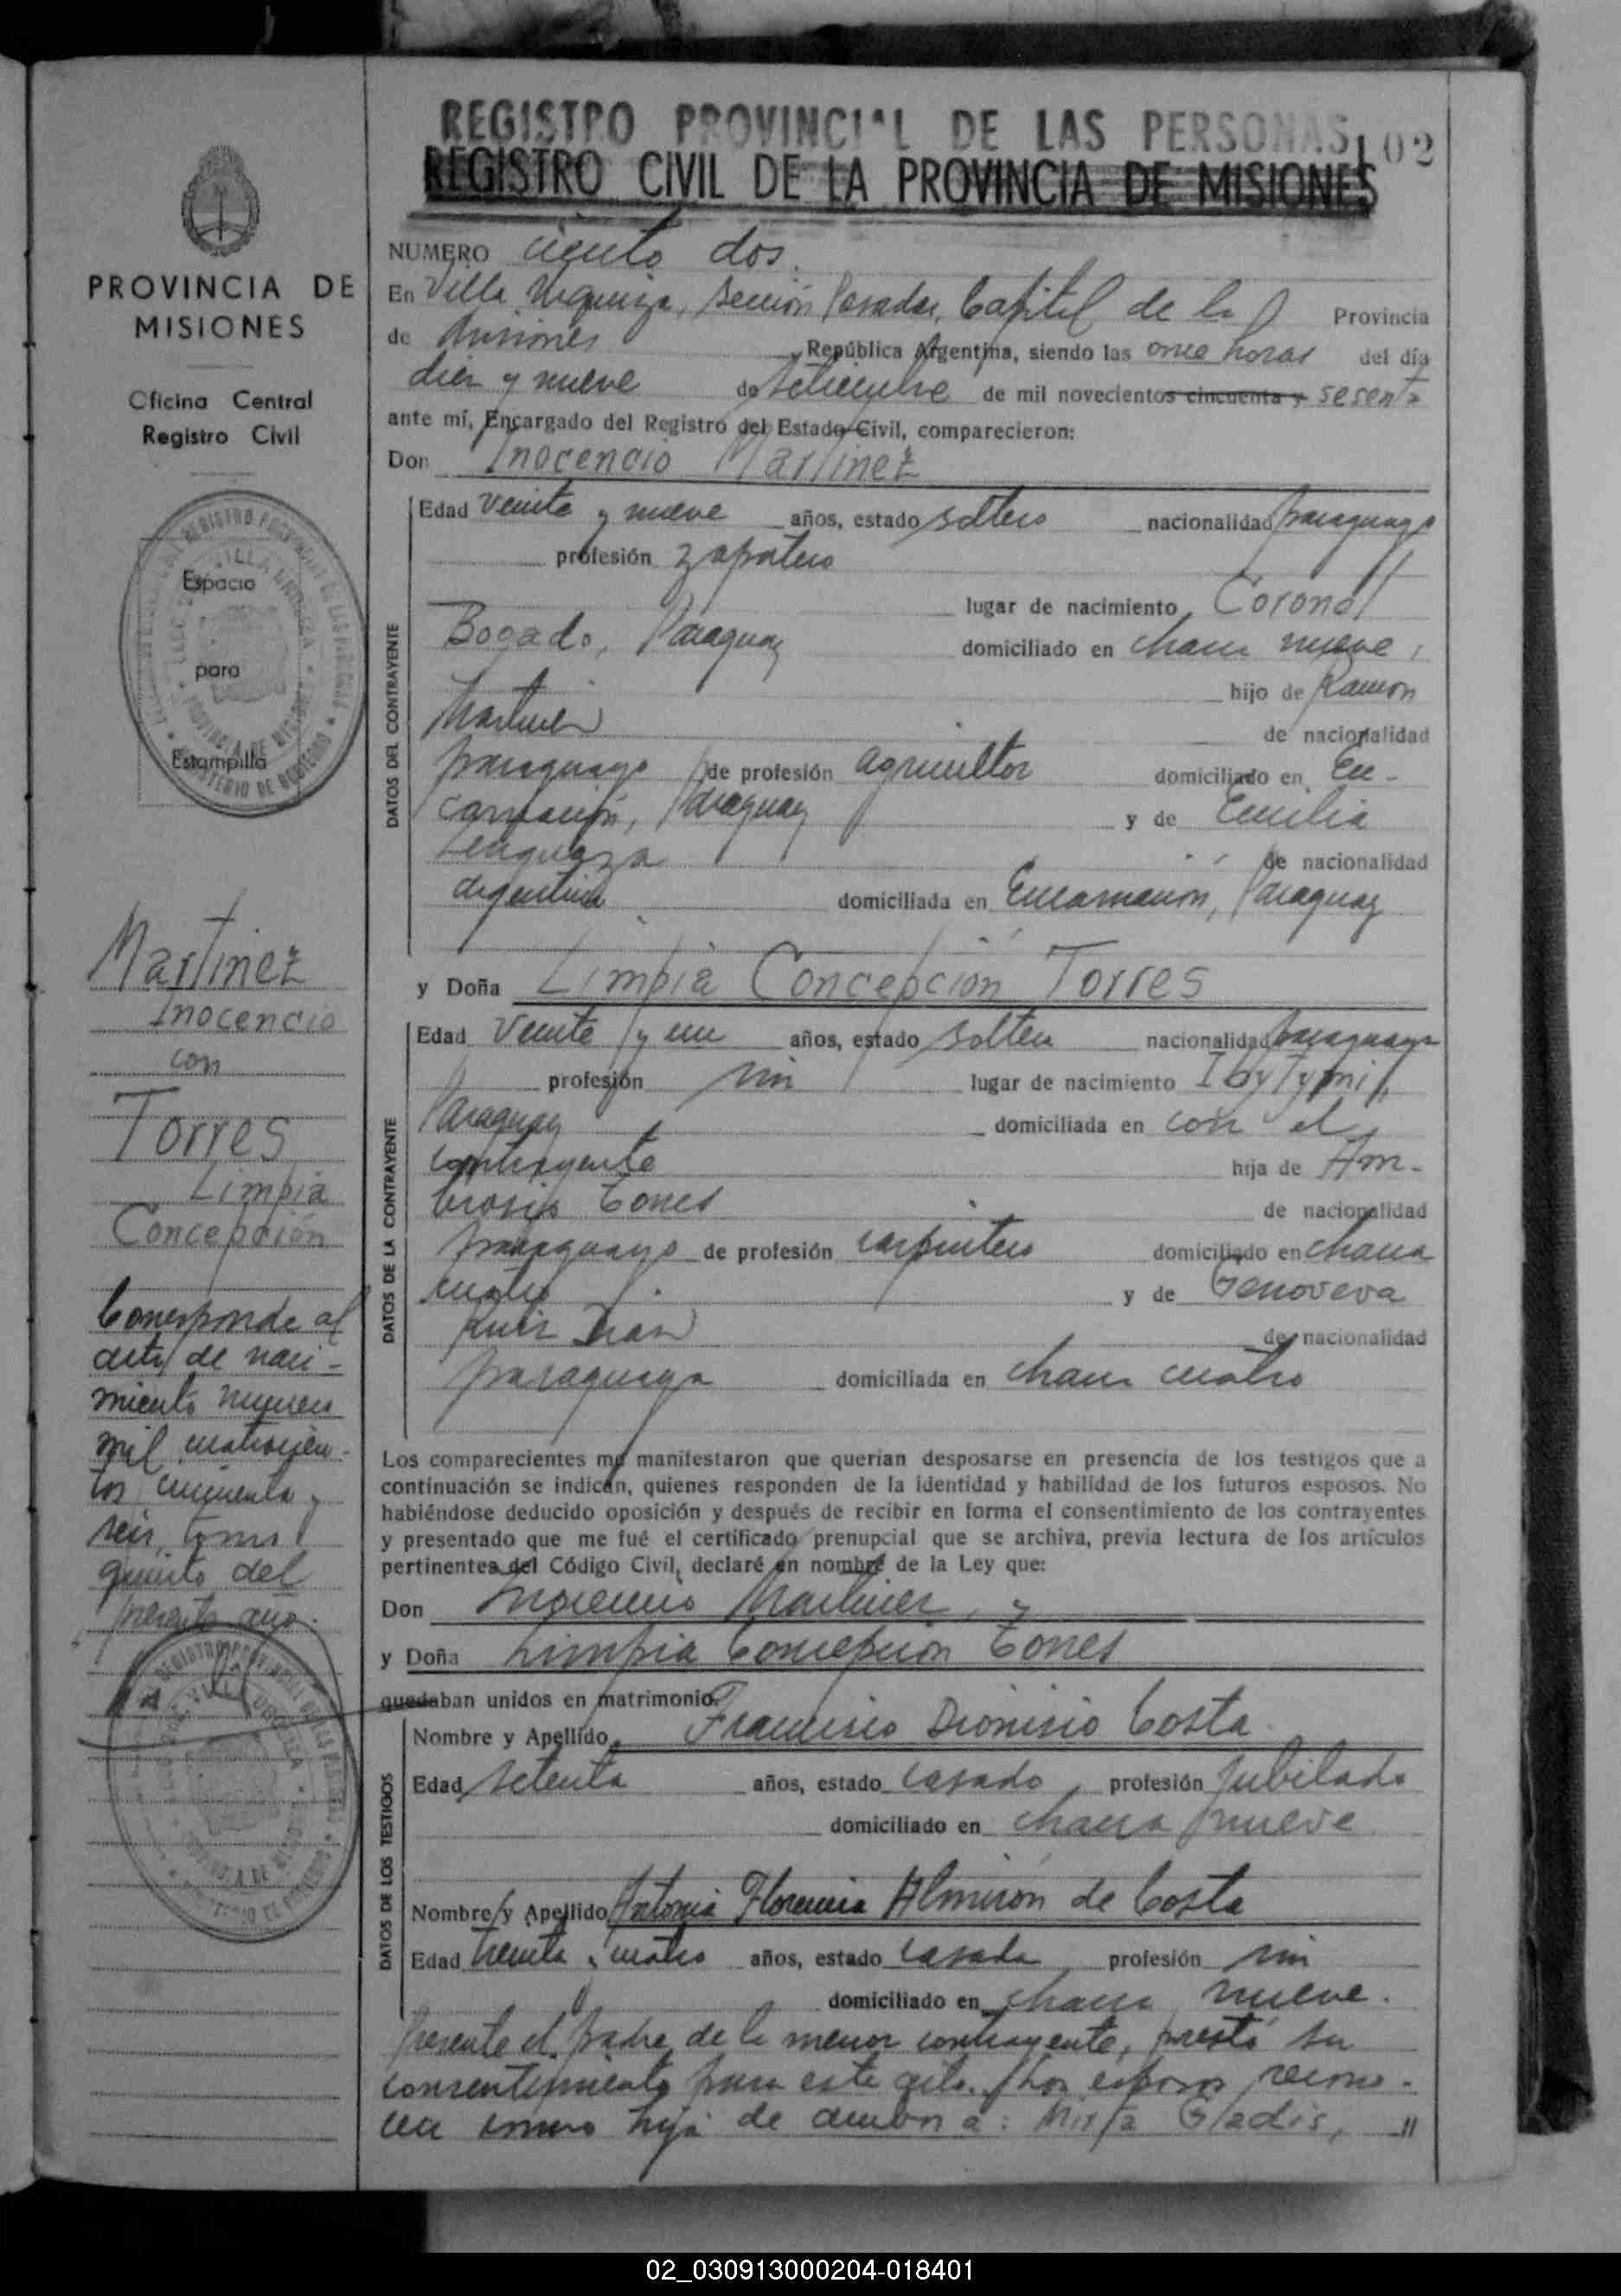 REGISTRO PROVINCIAL DE LAS PERSONAS
102
REGISTRO CIVIL DE LA PROVINCIA DE MISIONES
PROVINCIA DE
MISIONES
Oficina Central
Registro Civil
Espacio
para
Estampilla
Martinez
Inocencio
con
Torres
Limpia
Concepción
Corresponde al
acta de naci-
miento número
mil cuatrocien-
tos cincuenta y
seis, tomo
quinto del
presente año.
NUMERO ciento dos.
En Villa Urquiza, sección Posadas, Capital de la Provincia
de Misiones República Argentina, siendo las once horas del día
diez y nueve de setiembre de mil novecientos cincuenta y sesenta
ante mí, Encargado del Registro del Estado Civil, comparecieron:
Don Inocencio Martinez
DATOS DEL CONTRAYENTE
Edad veinte y nueve años, estado soltero nacionalidad paraguayo
profesión zapatero
lugar de nacimiento Coronel
Bogado, Paraguay domiciliado en chacra nueve,
hijo de Ramón
Martinez de nacionalidad
paraguayo de profesión agricultor domiciliado en En-
carnación, Paraguay y de Emilia
de nacionalidad
argentina domiciliada en Encarnación, Paraguay
y Doña Limpia Concepción Torres
DATOS DE LA CONTRAYENTE
Edad veinte y un años, estado soltera nacionalidad paraguaya
profesión sin lugar de nacimiento IbyTymi,
Paraguay domiciliada en con el
contrayente hija de Am-
brosio Torres de nacionalidad
paraguayo de profesión carpintero domiciliado en chacra
cuatro y de Genoveva
Ruiz Diaz de nacionalidad
paraguaya domiciliada en chacra cuatro
Los comparecientes me manifestaron que querían desposarse en presencia de los testigos que a
continuación se indican, quienes responden de la identidad y habilidad de los futuros esposos. No
habiéndose deducido oposición y después de recibir en forma el consentimiento de los contrayentes
y presentado que me fué el certificado prenupcial que se archiva, previa lectura de los artículos
pertinentes del Código Civil, declaré en nombre de la Ley que:
Don Inocencio Martinez, y
y Doña Limpia Concepción Torres
quedaban unidos en matrimonio.
DATOS DE LOS TESTIGOS
Nombre y Apellido Francisco Dionisio Costa
Edad setenta años, estado casado, profesión jubilado
domiciliado en chacra nueve
Nombre y Apellido Antonia Florencia Almirón de Costa
Edad treinta y cuatro años, estado casada profesión sin
domiciliado en chacra nueve.
Presente el padre de la menor contrayente, prestó su
consentimiento para este acto. Los esposos recono-
cen como hija de ambos a: Mirta Gladis, //
02_030913000204-018401